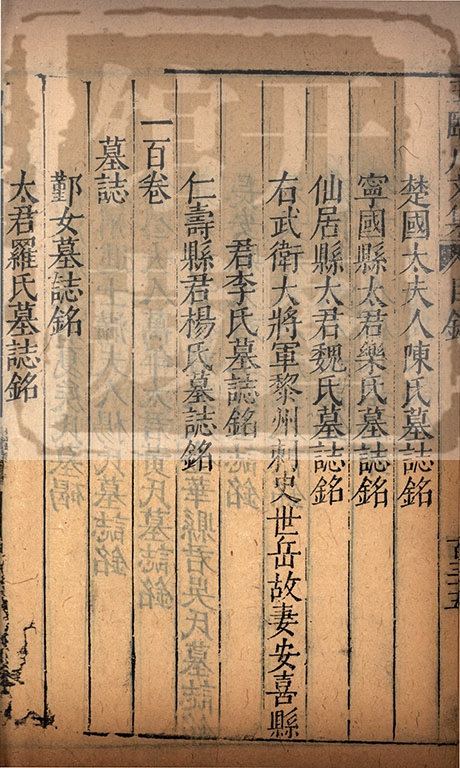 楚國太夫人陳氏墓誌銘
寧國縣太君樂氏墓誌銘
仙居縣太君魏氏墓誌銘
右武衛大將軍黎州刺史世岳故妻安喜縣
君李氏墓誌銘
仁壽縣君楊氏墓誌銘
一百卷
墓誌
鄞女墓誌銘
太君羅氏墓誌銘